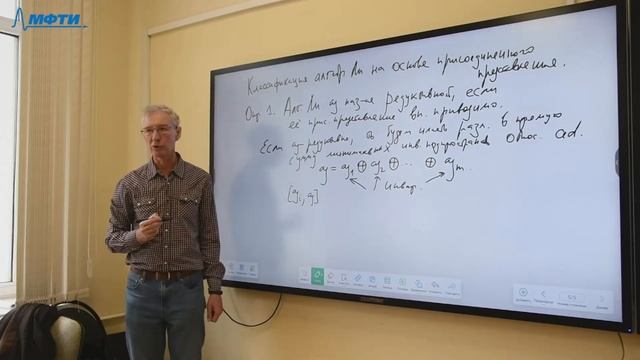 МФТИ
Классификация алгебр Ли на основе присоединенного
представления.
Опр. 1. Алг Ли g наз-ся редуктивной, если
её прис представление вп. приводимо.
Если g редуктивна, то будем иметь разл. в прямую
сумму минимальных инв. подпространств относ. ad.
g = g₁ ⊕ g₂ ⊕ ... ⊕ gₘ.
↑ инвар.
[gᵢ, g]